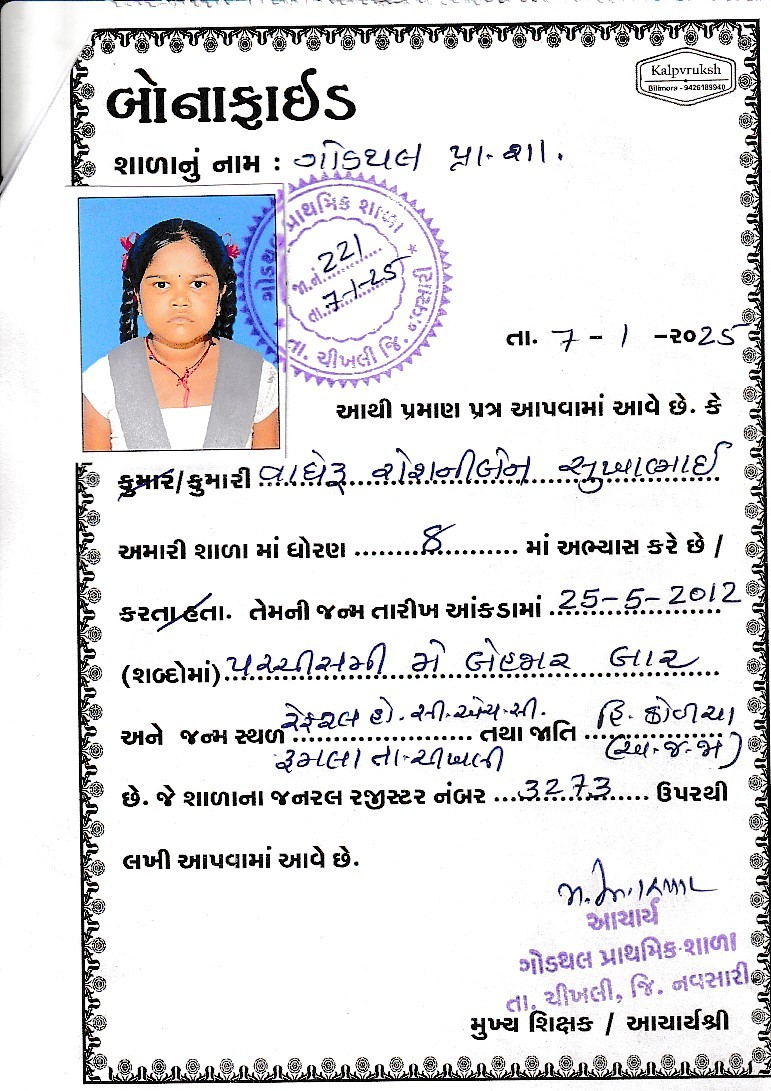 Kalpvruksh
Bilimora - 9426189940
બોનાફાઈડ
શાળાનું નામ : ગોડથલ પ્રા. શા.
ગોડથલ પ્રાથમિક શાળા
જા.નં. 221
તા. 7-1-25
તા. ચીખલી જિ. નવસારી
તા. 7 - 1 -૨૦25
આથી પ્રમાણ પત્ર આપવામાં આવે છે. કે
કુમાર/કુમારી વાઘેરૂ રોશનીબેન સુખાભાઈ
અમારી શાળા માં ધોરણ ...8... માં અભ્યાસ કરે છે /
કરતા હતા. તેમની જન્મ તારીખ આંકડામાં 25-5-2012
(શબ્દોમાં) પચ્ચીસમી મે બેહજાર બાર
રેફરલ હો. સી.એચ.સી. હિ. કોળચા
અને જન્મ સ્થળ ... તથા જાતિ ...
રૂમલા તા-ચીખલી (અ.જ.જા)
છે. જે શાળાના જનરલ રજીસ્ટર નંબર ...3273... ઉપરથી
લખી આપવામાં આવે છે.
આચાર્ય
ગોડથલ પ્રાથમિક શાળા
તા. ચીખલી, જિ. નવસારી.
મુખ્ય શિક્ષક / આચાર્યશ્રી